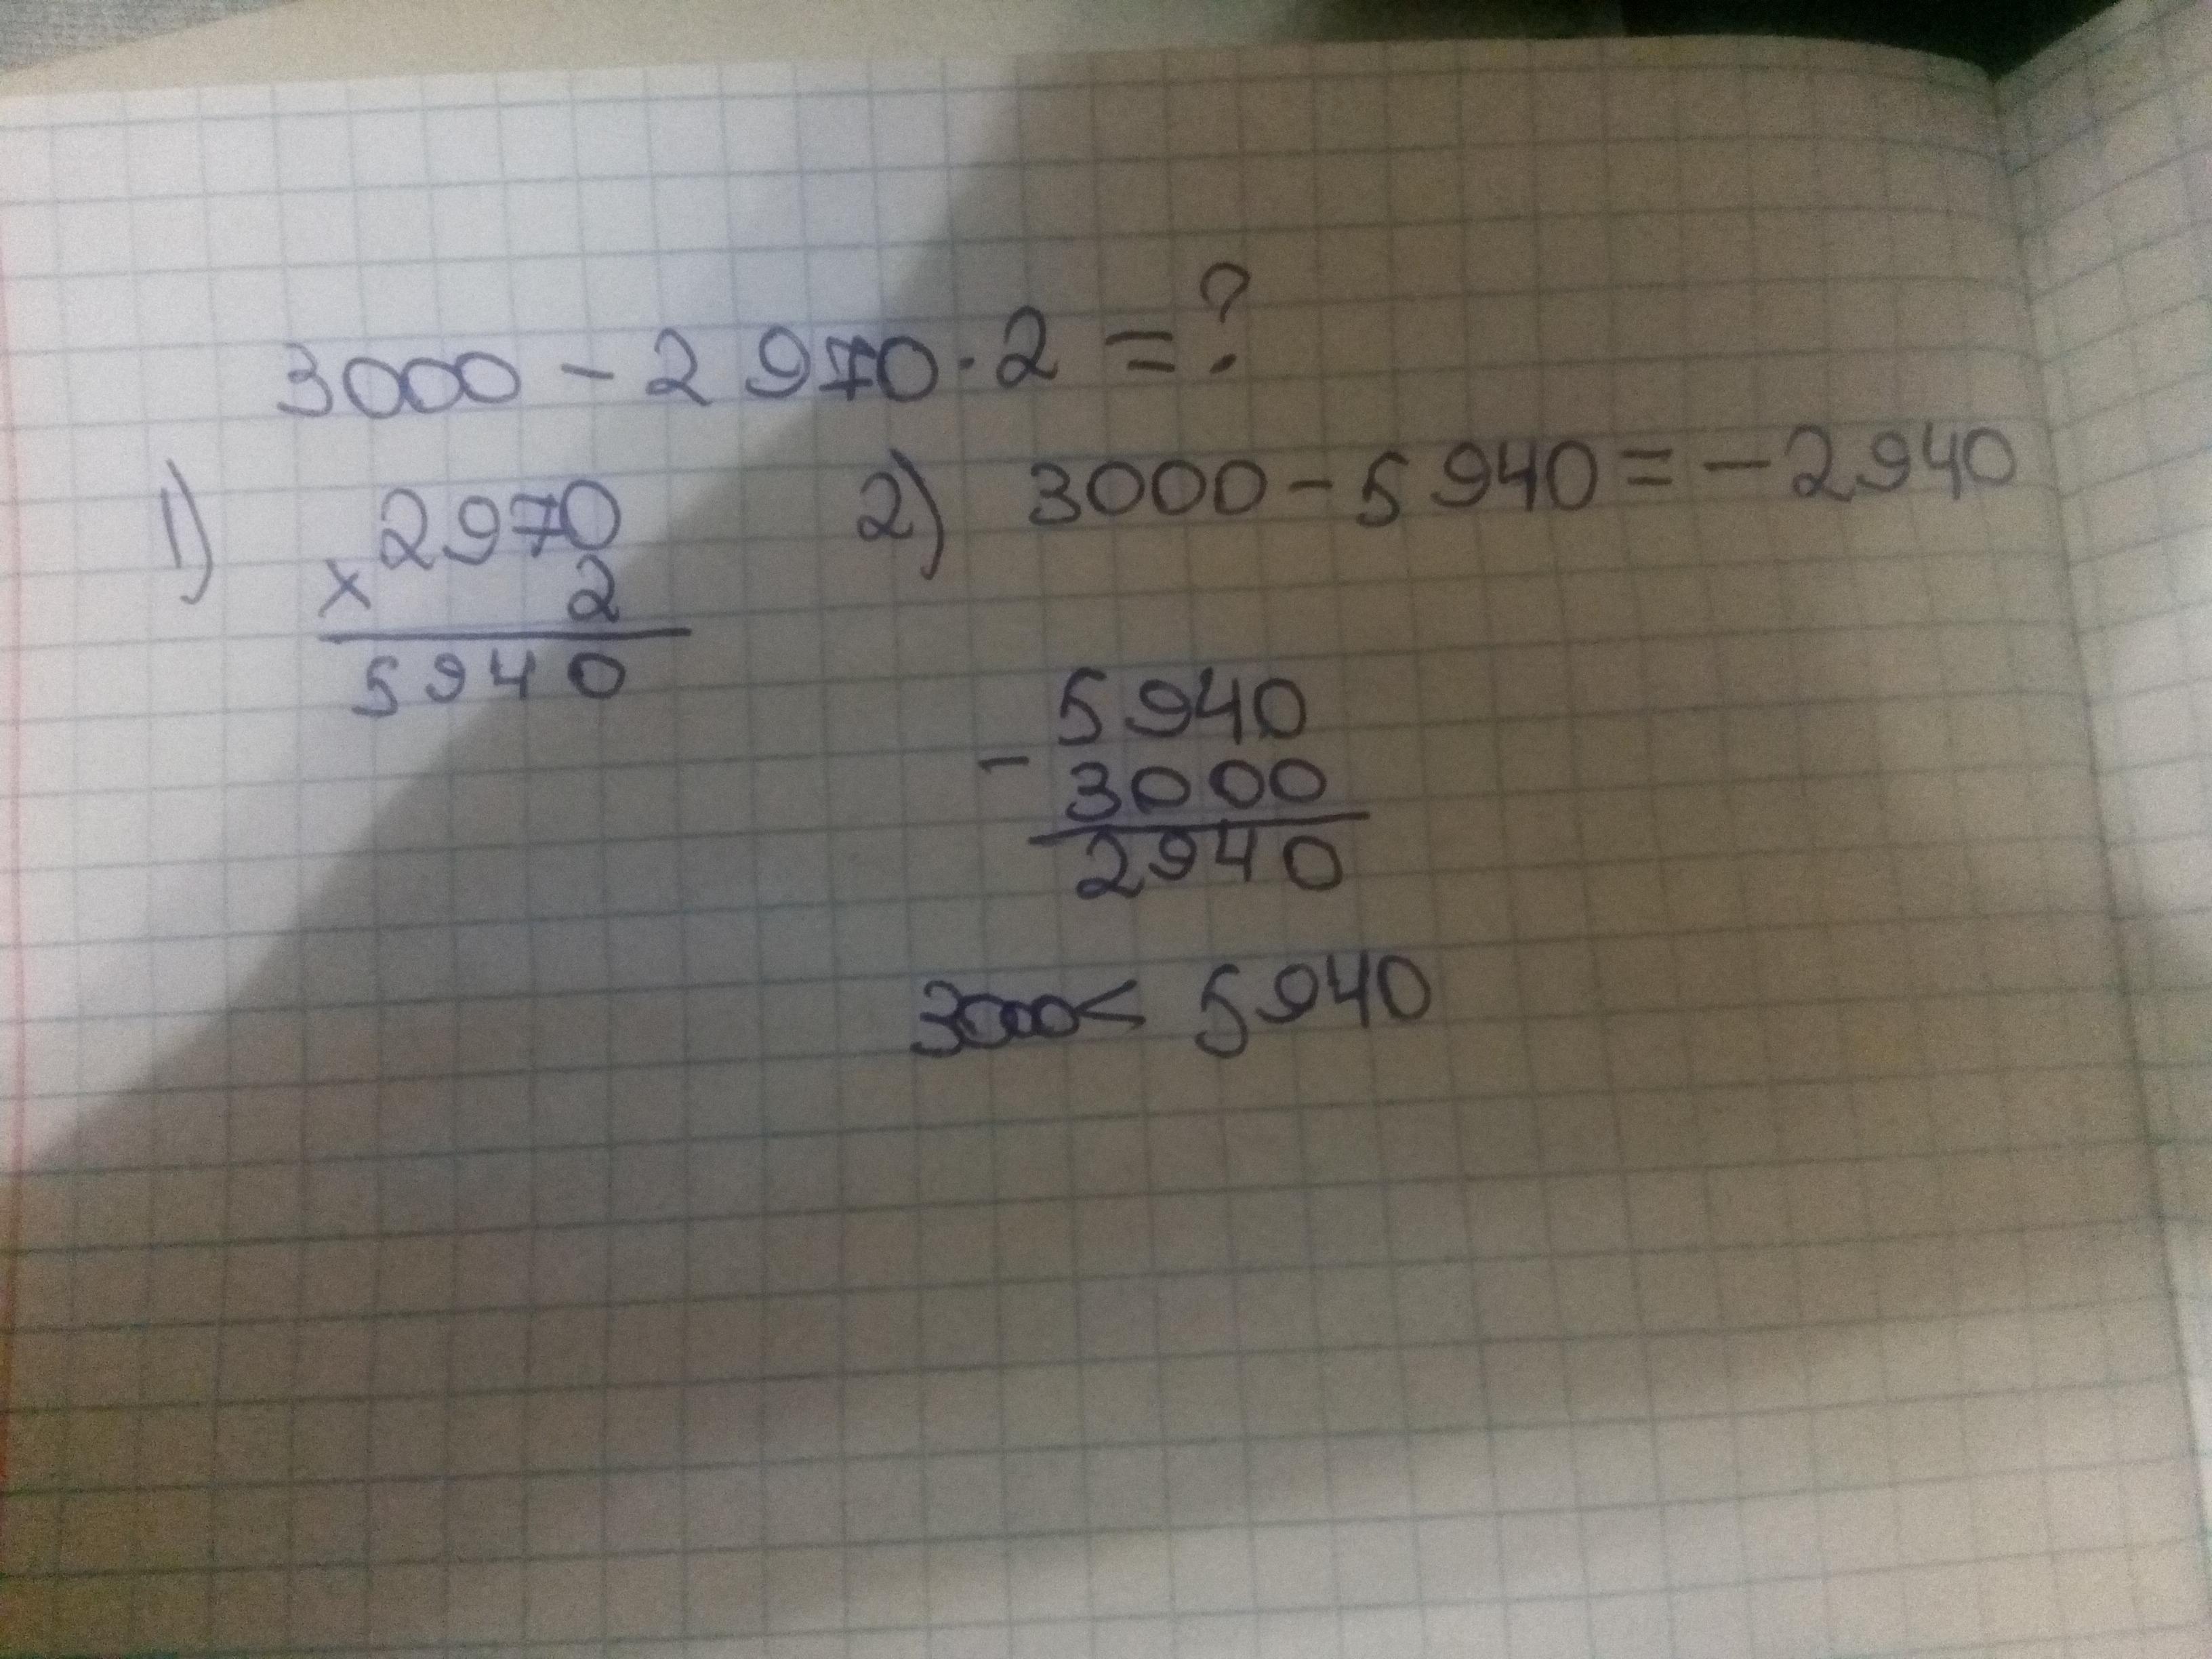 3000 - 2 970 · 2 = ?
1)
2970
× 2
5940
2) 3000 - 5 940 = - 2940
5940
- 3000
2940
3000 < 5940